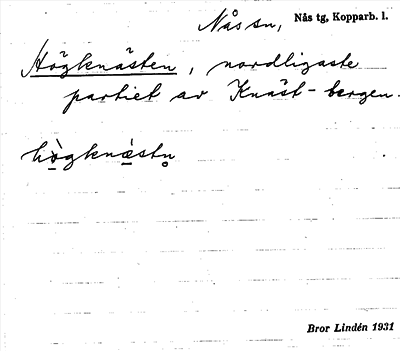 Nås sn, Nås tg, Kopparb. l.
Högknästen, nordligaste
partiet av Knäst-bergen.
hògknæ̀stn̥
Bror Lindén 1931